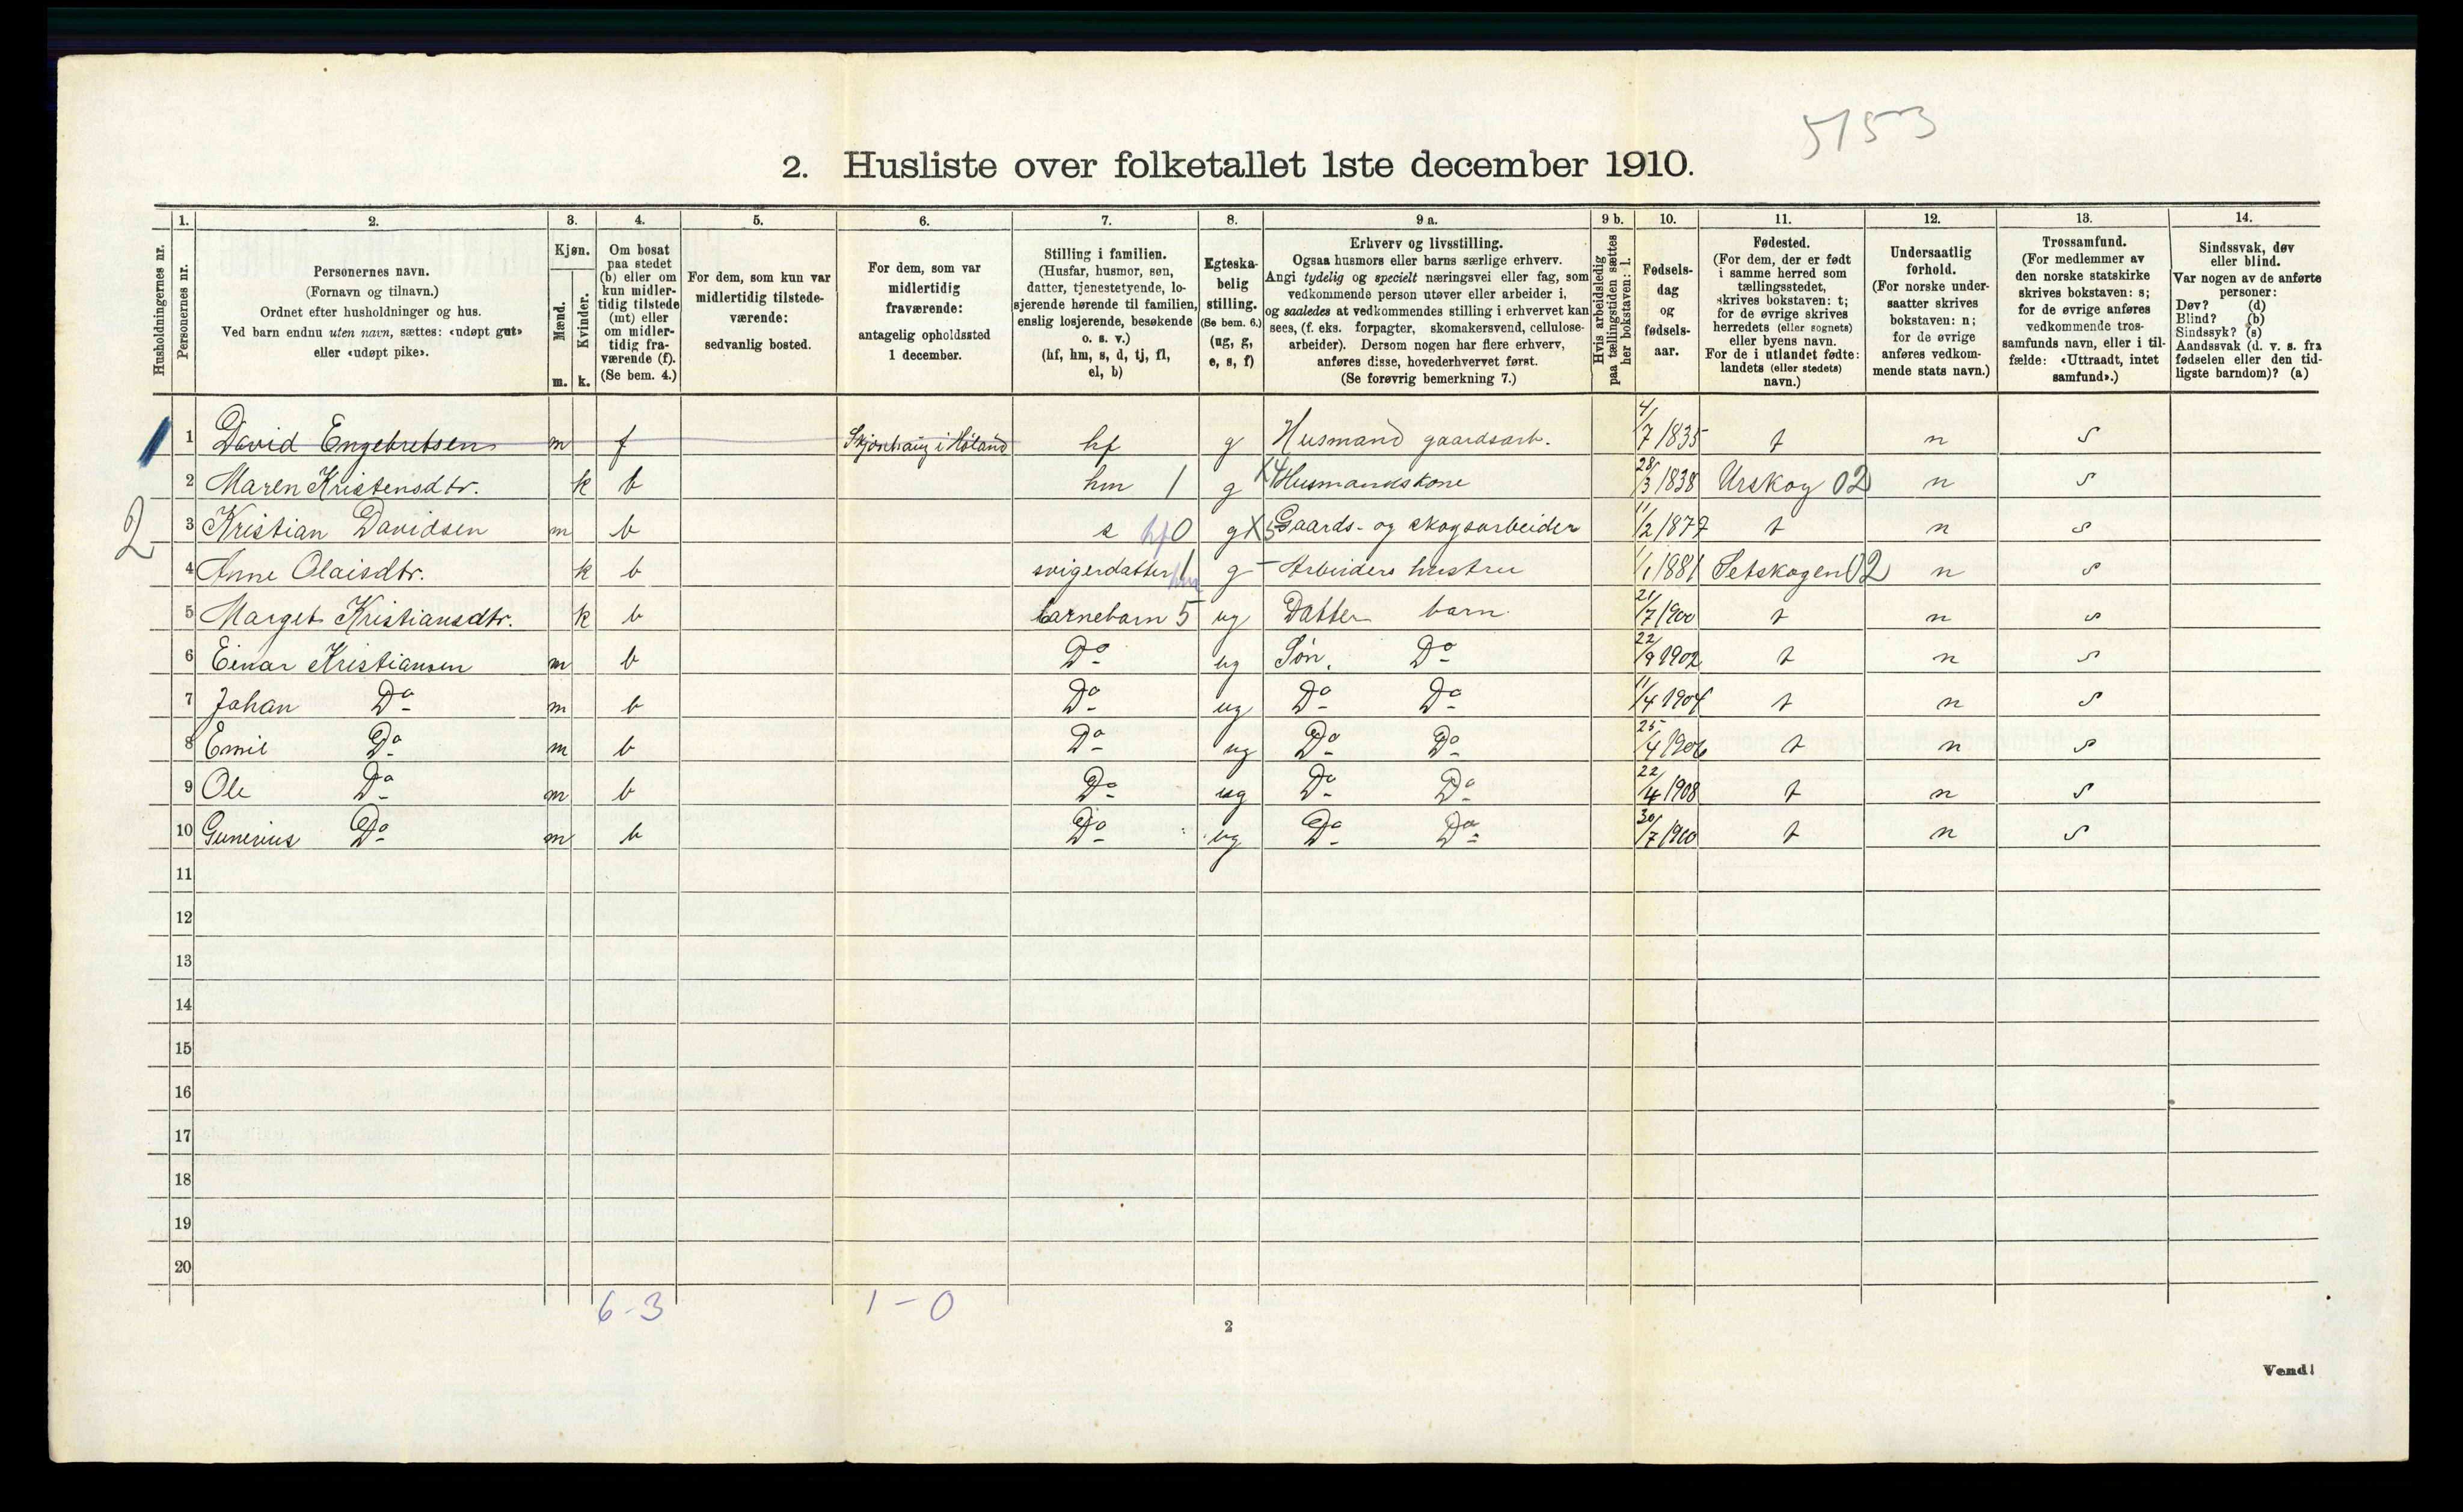 5153
2. Husliste over folketallet 1ste december 1910.
Husholdningernes nr.
1. Personernes nr.
2. Personernes navn.
(Fornavn og tilnavn.)
Ordnet efter husholdninger og hus.
Ved barn endnu uten navn, sættes: «udøpt gut»
eller «udøpt pike».
3. Kjøn.
Mænd. m.
Kvinder. k.
4. Om bosat
paa stedet
(b) eller om
kun midler-
tidig tilstede
(mt) eller
om midler-
tidig fra-
værende (f).
(Se bem. 4.)
5. For dem, som kun var
midlertidig tilstede-
værende:
sedvanlig bosted.
6. For dem, som var
midlertidig
fraværende:
antagelig opholdssted
1 december.
7. Stilling i familien.
(Husfar, husmor, søn,
datter, tjenestetyende, lo-
sjerende hørende til familien,
enslig losjerende, besøkende
o. s. v.)
(hf, hm, s, d, tj, fl,
el, b)
8. Egteska-
belig
stilling.
(Se bem. 6.)
(ug, g,
e, s, f)
9 a. Erhverv og livsstilling.
Ogsaa husmors eller barns særlige erhverv.
Angi tydelig og specielt næringsvei eller fag, som
vedkommende person utøver eller arbeider i,
og saaledes at vedkommendes stilling i erhvervet kan
sees, (f. eks. forpagter, skomakersvend, cellulose-
arbeider). Dersom nogen har flere erhverv,
anføres disse, hovederhvervet først.
(Se forøvrig bemerkning 7.)
9 b. Hvis arbeidsledig
paa tællingstiden sættes
her bokstaven: l.
10. Fødsels-
dag
og
fødsels-
aar.
11. Fødested.
(For dem, der er født
i samme herred som
tællingsstedet,
skrives bokstaven: t;
for de øvrige skrives
herredets (eller sognets)
eller byens navn.
For de i utlandet fødte:
landets (eller stedets)
navn.)
12. Undersaatlig
forhold.
(For norske under-
saatter skrives
bokstaven: n;
for de øvrige
anføres vedkom-
mende stats navn.)
13. Trossamfund.
(For medlemmer av
den norske statskirke
skrives bokstaven: s;
for de øvrige anføres
vedkommende tros-
samfunds navn, eller i til-
fælde: «Uttraadt, intet
samfund».)
14. Sindssvak, døv
eller blind.
Var nogen av de anførte
personer:
Døv? (d)
Blind? (b)
Sindssyk? (s)
Aandssvak (d. v. s. fra
fødselen eller den tid-
ligste barndom)? (a)
1 David Engebretsen m f Skjønhaug i Høland hf g Husmand gaardsarb. 4/7 1835 t n s
2 Maren Kristensdtr. k b hm 1 g X4 Husmandskone 28/3 1838 Urskog 02 n s
2
3 Kristian Davidsen m b s hf 0 g X5 Gaards- og skogsarbeider 11/2 1877 t n s
4 Anne Olaisdtr. k b svigerdatter hm 1 g - Arbeiders hustru 1/1 1881 Setskogen 02 n s
5 Marget Kristiansdtr. k b barnebarn 5 ug Datter barn 21/7 1900 t n s
6 Einar Kristiansen m b Do ug Søn. Do 22/9 1902 t n s
7 Johan Do m b Do ug Do Do 11/4 1904 t n s
8 Emil Do m b Do ug Do Do 25/4 1906 t n s
9 Ole Do m b Do ug Do Do 22/4 1908 t n s
10 Gunerius Do m b Do ug Do Do 30/7 1900 t n s
11
12
13
14
15
16
17
18
19
20
6-3 1-0
2
Vend!